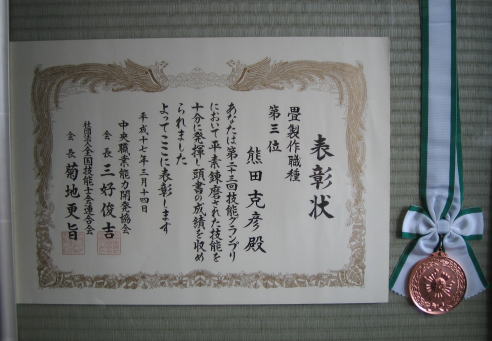 表彰状
畳製作職種
第三位
熊田克彦殿
あなたは第二十三回技能グランプリ
において平素錬磨された技能を
十分に発揮し頭書の成績を収め
られました
よってここに表彰します
平成十七年三月十四日
中央職業能力開発協会
会長 三好俊吉
社団法人全国技能士会連合会
会長 菊地更旨